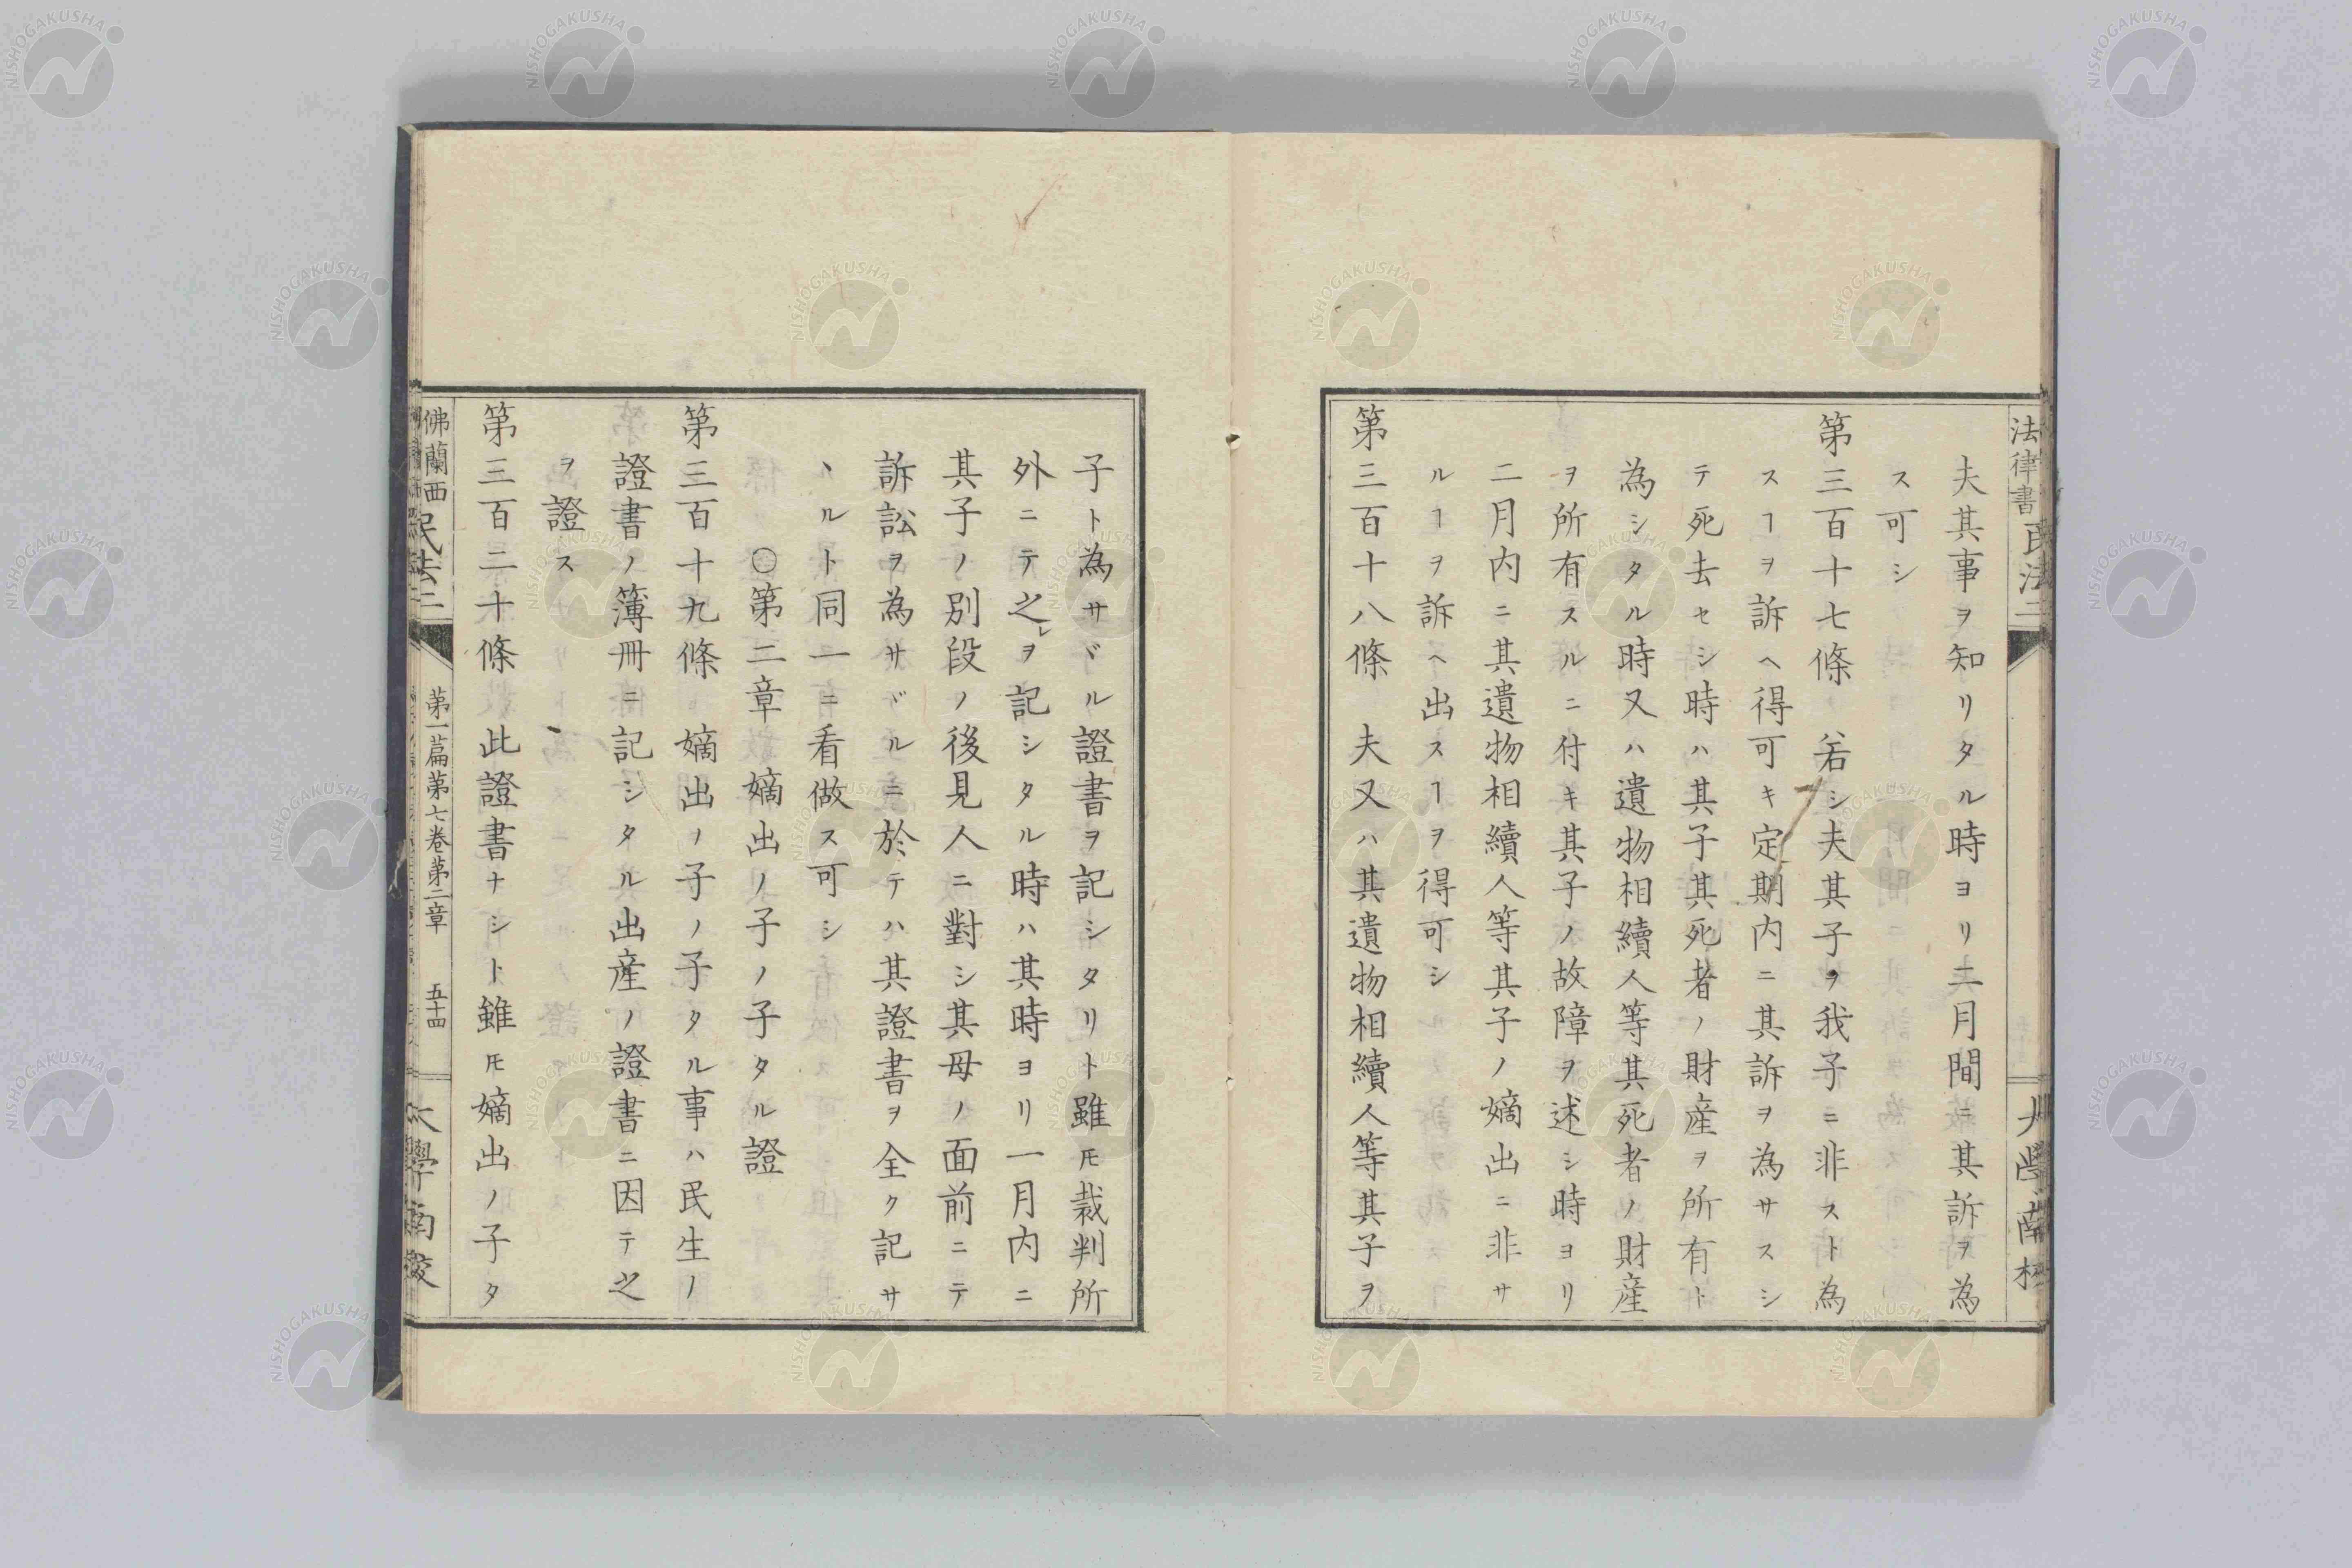 法律書 民法二
大學南校
夫其事ヲ知リタル時ヨリ二月間ニ其訴ヲ為
ス可シ
第三百十七條 若シ夫其子ヲ我子ニ非スト為
スヿヲ訴ヘ得可キ定期内ニ其訴ヲ為サスシ
テ死去セシ時ハ其子其死者ノ財産ヲ所有ト
為シタル時又ハ遺物相續人等其死者ノ財産
ヲ所有スルニ付キ其子ノ故障ヲ述シ時ヨリ
二月内ニ其遺物相續人等其子ノ嫡出ニ非サ
ルヿヲ訴ヘ出スヿヲ得可シ
第三百十八條 夫又ハ其遺物相續人等其子ヲ
子ト為サヾル證書ヲ記シタリト雖𪜈裁判所
外ニテ之レヲ記シタル時ハ其時ヨリ一月内ニ
其子ノ別段ノ後見人ニ對シ其母ノ面前ニテ
訴訟ヲ為サヾルニ於テハ其證書ヲ全ク記サ
ヽルト同一ニ看做ス可シ
○第二章 嫡出ノ子ノ子タル證
第三百十九條 嫡出ノ子ノ子タル事ハ民生ノ
證書ノ簿冊ニ記シタル出産ノ證書ニ因テ之
ヲ證ス
第三百二十條 此證書ナシト雖𪜈嫡出ノ子タ
佛蘭西民法二
第一篇第七卷第二章 五十四
大學南校
NISHOGAKUSHA